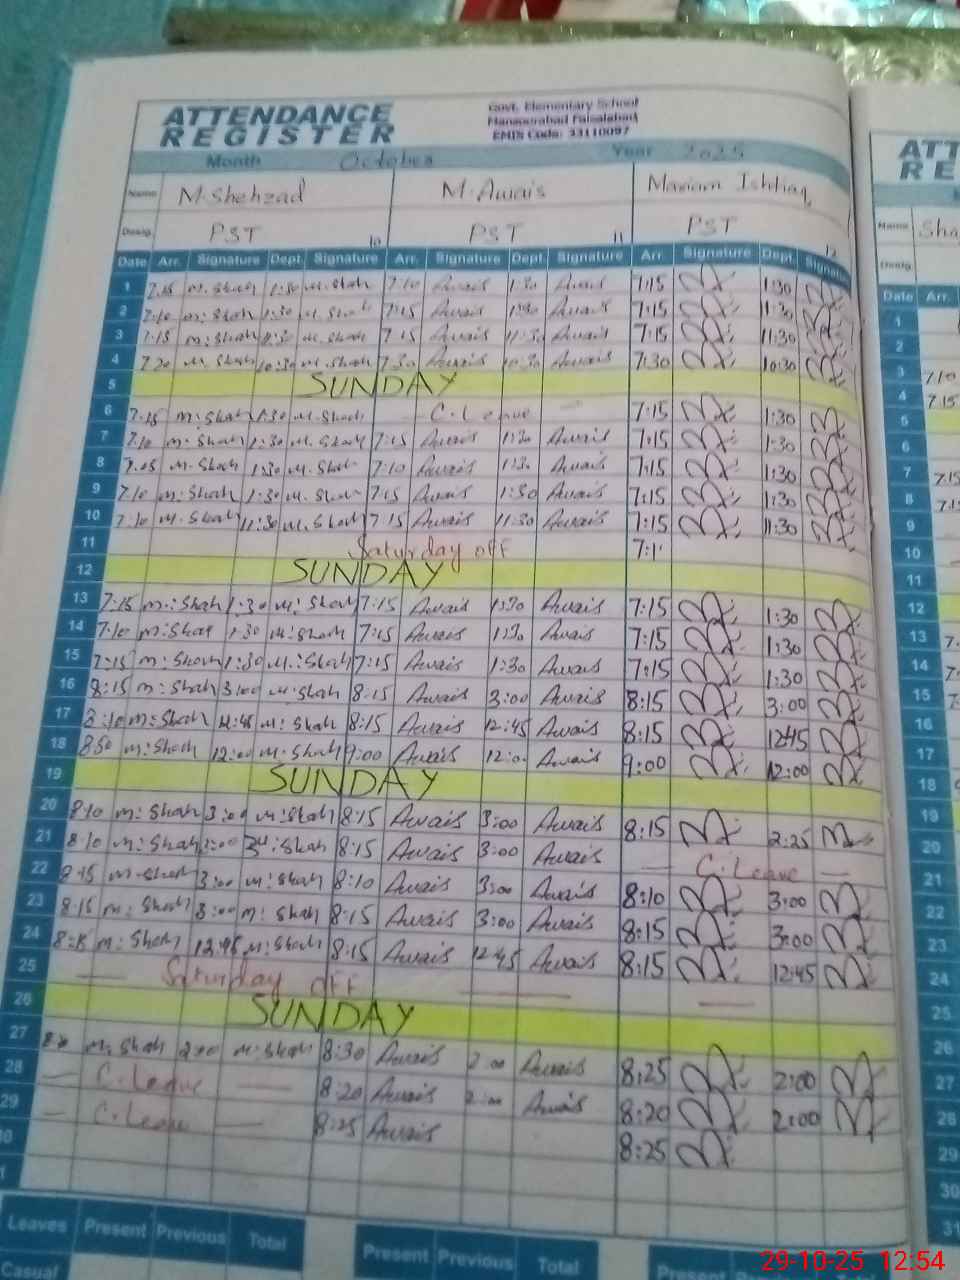 ATTENDANCE
REGISTER
Govt. Elementary School
Mansoorabad Faisalabad
EMIS Code: 33110097
Month October Year 2025
Name M.Shehzad M.Awais Mariam Ishtiaq
Desig. PST 10 PST 11 PST 12
Date Arr. Signature Dept. Signature Arr. Signature Dept. Signature Arr Signature Dept. Signature
1 7:15 M.Shah 1:30 M.Shah 7:10 Awais 1:30 Awais 7:15 1:30
2 7:10 M:Shah 1:30 M.Shah 7:15 Awais 1:30 Awais 7:15 1:30
3 7:15 M:Shah 11:30 M.Shah 7:15 Awais 11:30 Awais 7:15 11:30
4 7:20 M.Shah 10:30 M.Shah 7:30 Awais 10:30 Awais 7:30 10:30
5 SUNDAY
6 7:15 M:Shah 1:30 M.Shah — C.Leave — 7:15 1:30
7 7:10 M:Shah 1:30 M.Shah 7:15 Awais 1:30 Awais 7:15 1:30
8 7:15 M.Shah 1:30 M.Shah 7:10 Awais 1:30 Awais 7:15 1:30
9 7:10 M:Shah 1:30 M.Shah 7:15 Awais 1:30 Awais 7:15 1:30
10 7:10 M.Shah 11:30 M.Shah 7:15 Awais 11:30 Awais 7:15 11:30
11 Saturday off 7:1
12 SUNDAY
13 7:15 M.:Shah 1:30 M:Shah 7:15 Awais 1:30 Awais 7:15 1:30
14 7:10 M:Shah 1:30 M:Shah 7:15 Awais 1:30 Awais 7:15 1:30
15 7:15 M:Shah 1:30 M.:Shah 7:15 Awais 1:30 Awais 7:15 1:30
16 8:15 M:Shah 3:00 M:Shah 8:15 Awais 3:00 Awais 8:15 3:00
17 8:10 M:Shah 12:45 M:Shah 8:15 Awais 12:45 Awais 8:15 12:45
18 8:50 M:Shah 12:00 M.Shah 9:00 Awais 12:0 Awais 9:00 12:00
19 SUNDAY
20 8:10 M:Shah 3:00 M:Shah 8:15 Awais 3:00 Awais 8:15 2:25
21 8:10 M:Shah 3:00 Shah 8:15 Awais 3:00 Awais — C.Leave —
22 8:15 M.Shah 3:00 M:Shah 8:10 Awais 3:00 Awais 8:10 3:00
23 8:15 M:Shah 3:00 M:Shah 8:15 Awais 3:00 Awais 8:15 3:00
24 8:15 M:Shah 12:45 M:Shah 8:15 Awais 12:45 Awais 8:15 12:45
25 — Saturday off — —
26 SUNDAY
27 M.Shah 2:00 M.Shah 8:30 Awais 2:00 Awais 8:25 2:00
28 — C.Leave — 8:20 Awais 2:00 Awais 8:20 2:00
29 — C.Leave — 8:25 Awais 8:25
Leaves Present Previous Total Present Previous Total Present
Casual
ATT
RE
Name Sha
Desig.
Date Arr.
1
2
3 7:10
4 7:15
5
6
7 7:15
8
9
10
11
12
13
14
15
16
17
18
19
20
21
22
23
24
25
26
27
28
29
30
31
29-10-25 12:54